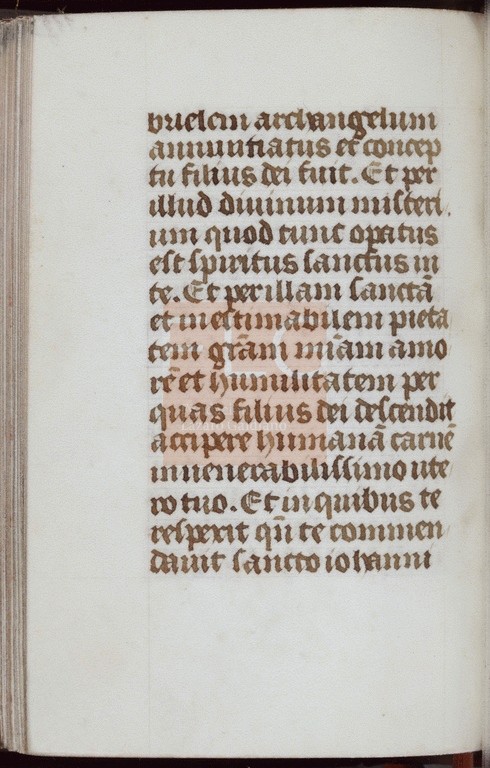 brielem archangelum
annuntiatus et concep
tu filius dei fuit. Et per
illud diuinum misteri
um quod tunc opatus
est spiritus sanctus in
te. Et per illam sanctā
et inestimabilem pieta
tem grām miām amo
rē et humilitatem per
quas filius dei descendit
accipere humanā carnē
in uenerabilissimo ute
ro tuo. Et in quibus te
respexit qn̄ te commen
dauit sancto iohanni